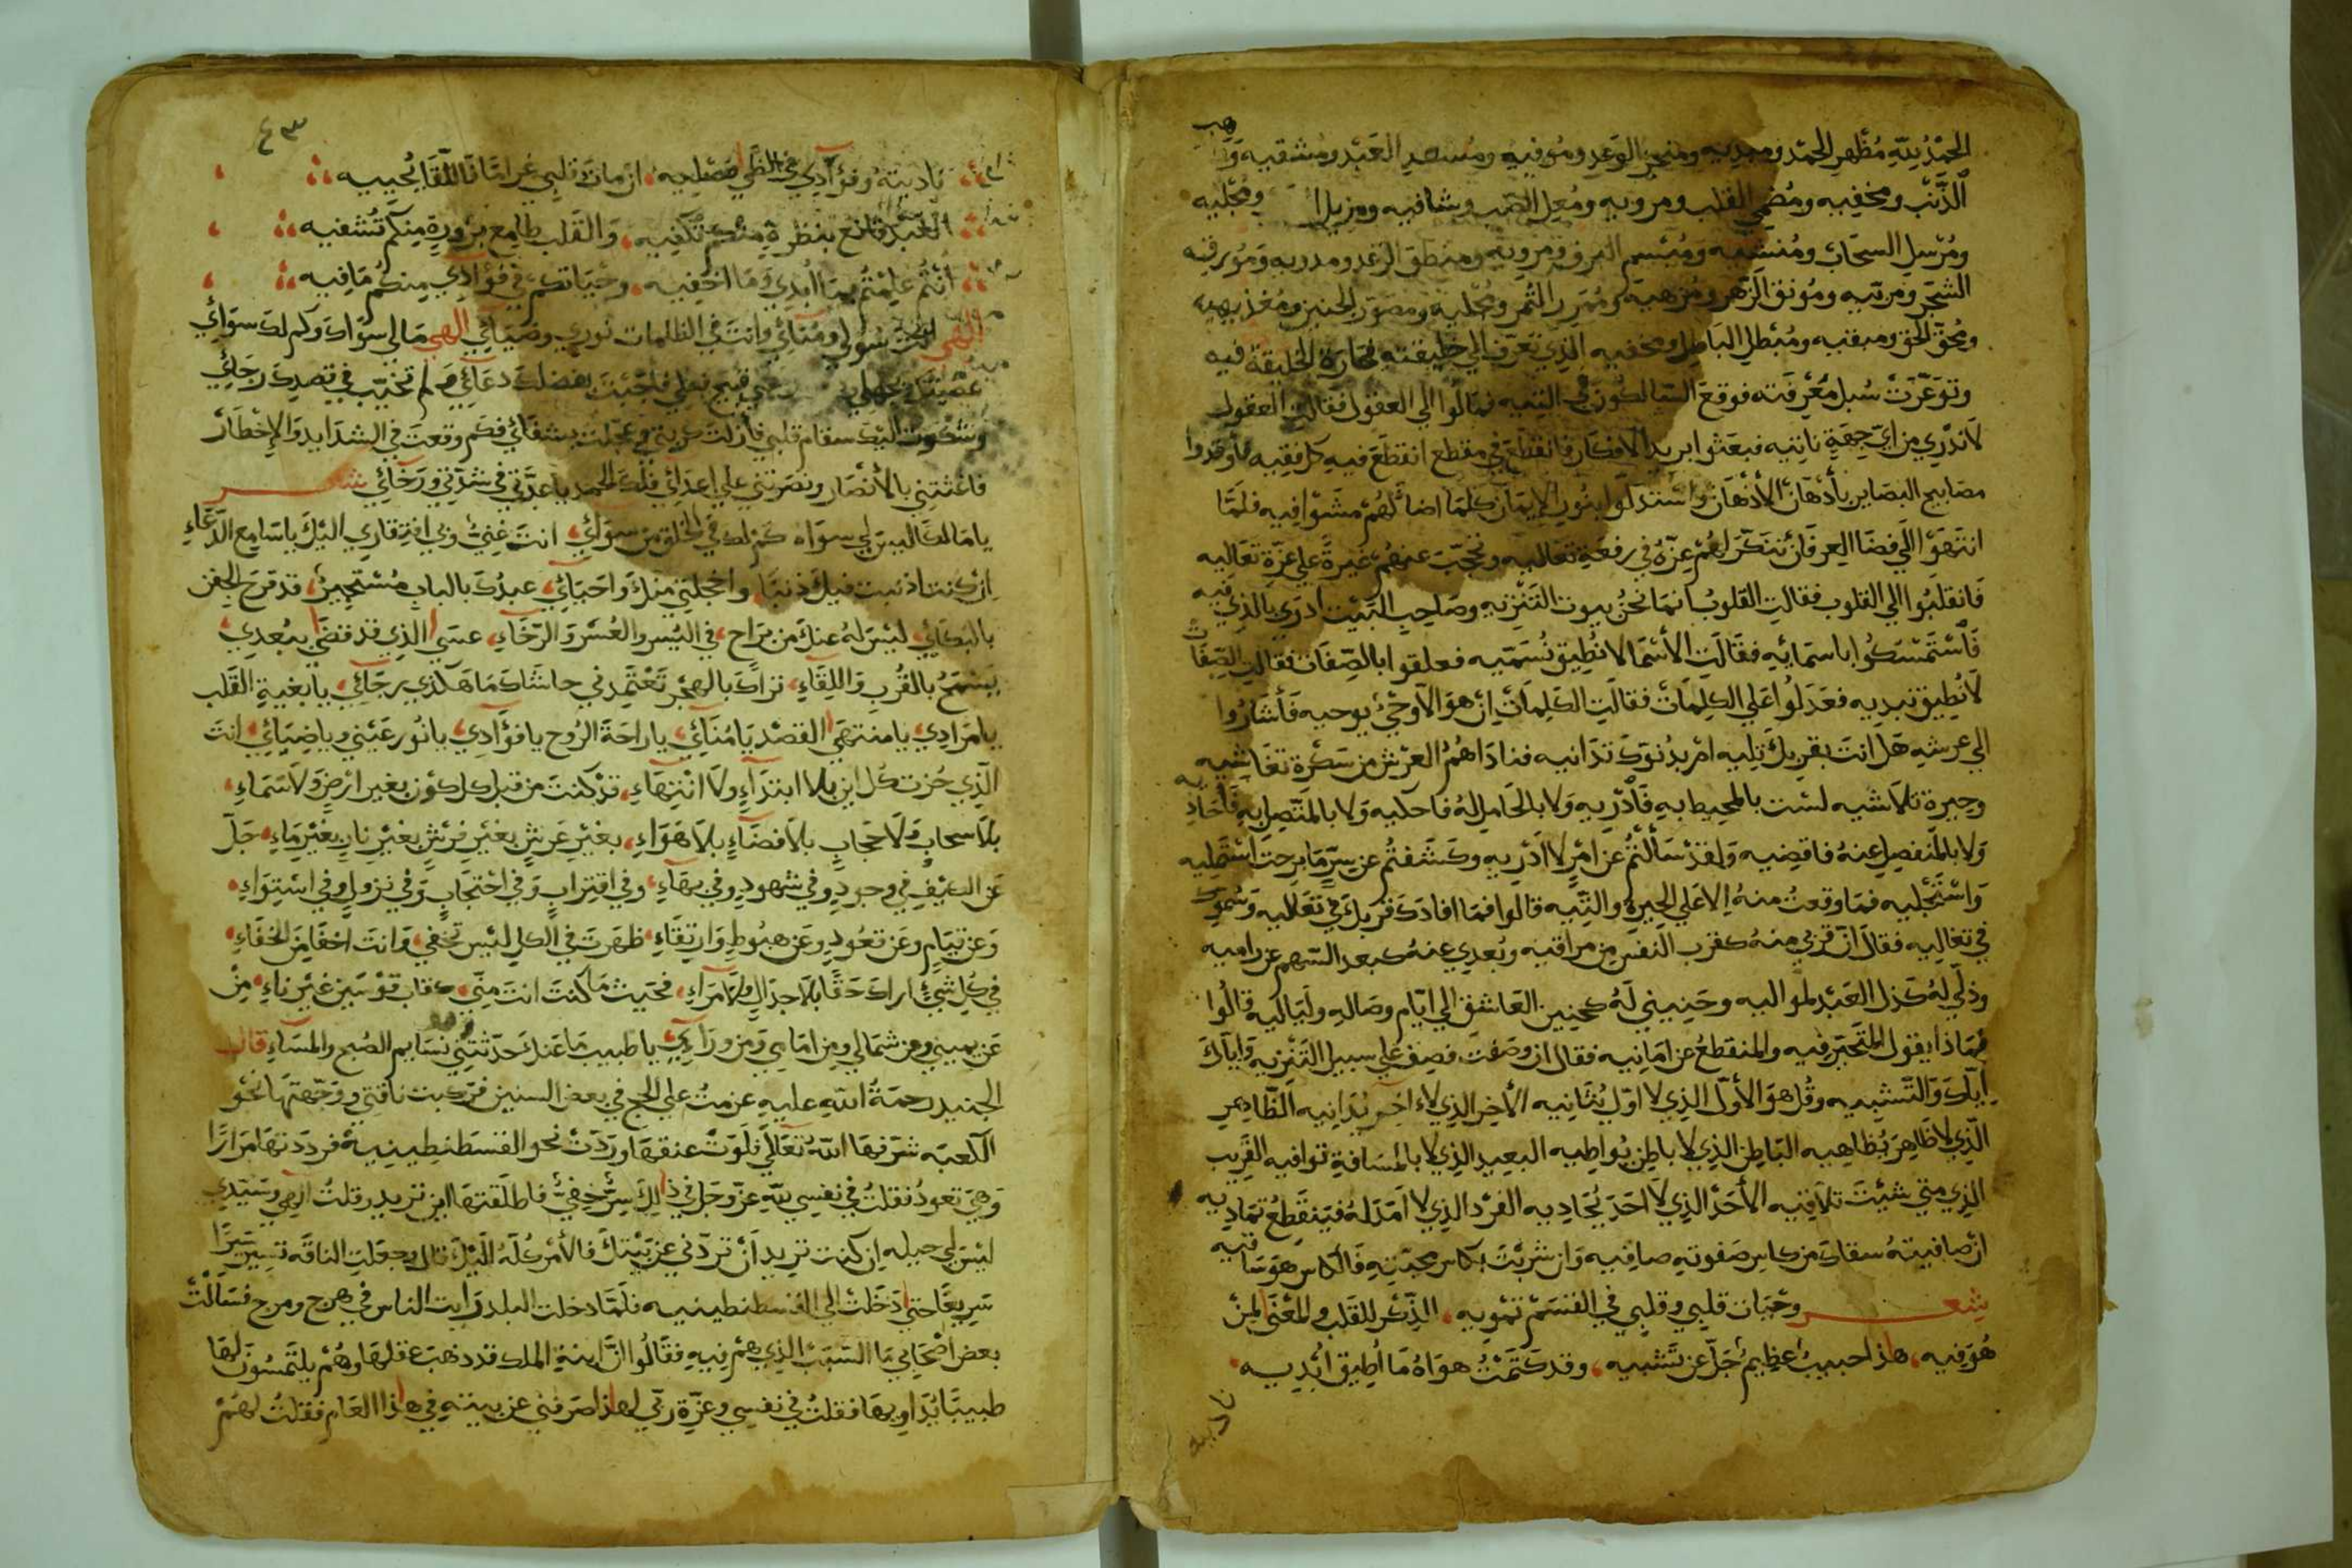 الحَمْدُ لِلَّهِ مُظْهِرِ الحَمْدِ ومبديه ومنجز الوَعدِ ومُوفيهِ ومُسعدِ العَبْدِ ومُشقيه وَاهب
الذَّنْب ومخفيه ومُضمي القلب ومرويه ومُعِل الصب وشافيه ومزيل ومُجْليه
ومُرْسِلِ السحَاب ومُنشيه وَمُبْسم البرق ومرويه ومنطق الرعد ومدريه وَمُورق
الشجَرِ ومربّيه ومُونق الزَّهر ومُزهيه ومُمَرر الثَّمر ومُحْليه ومصَوّر الجنين ومُغذيه
ومُحِقّ الحق ومبقيه ومُبْطِلِ البَاطِل ومخفيه الذِي تَعَرّف الي خليقته فحَارة الخليقة فيه
وتوَعّرَتْ سُبل مَعْرِفته فوقعَ السَالكُونَ في التيه فمَالُوا الي العقول فقالت العقول
لا نَدْرِي من ايّ جِهَةٍ نَاتيه فبعَثوا بريد الأفكار فانقطَعَ في مقطع انقطعَ فيهِ كل فقيه فأوقدوا
مصَابيح البصَايرِ بأدْهَان الأذْهَان واسْتدَلّوا بنُورِ الإيمَان كلمَا اضا لهُمْ مَشَوْا فيه فلمَّا
انتَهَوْا الَي فضَا العِرفَان تنكّرَ لهُمْ عزّهُ في رفعةِ تعَاليه وتحجّبَ عنهُمْ غَيْرةً علي عزّة تعَاليه
فَانقلَبُوا الي القلوب فقالتِ القلوبُ انمَا نحنُ بيوت التَنْزيهِ وصَاحِب البَيْت ادرَي بالذِي فيه
فَاسْتَمْسَكوا باسمَائِهِ فقَالَتِ الأسْمَا لا نُطِيق نُسَمّيه فعلقوا بالصِفَات فقالتِ الصِفَات
لا نُطِيق نبديه فعَدَلُوا عَلي الكلِمَات فقالتِ الكَلِمَات إنْ هوَ الا وَحْيٌ يوحيه فَأشَارُوا
الي عرشِهِ هَل انتَ بقربِكَ تليه ام بدُنوّكَ تدَانيه فنادَاهُمُ العَرْش من سَكْرة تغَاشيه
وحِيرة تلاشيه لسْت بالمحيط بهِ فَأدْرِيه وَلا بالحَامِل لهُ فَاحكيه وَلا بالمتّصِل بهِ فَأحَاذِيه
وَلا بالمنفصِل عنهُ فاقصِيه وَلقدْ سَألتُمْ عن امْرٍ لا ادْرِيه وكشَفتُم عن سِرٍّ مَا برحت اسْتَمليه
وَاسْتَجْليه فمَا وقعتُ منهُ إلا عَلي الحِيرة والتِّيه قالوا فمَا افادَكَ قربكَ في تعَاليه وَسُموّك
في تعَاليه فقالَ انّ قربي منهُ كقرب النفس من مراقيه وبُعدي عنهُ كبعد السّهم عن راميه
وذلّي لهُ كذل العَبْدِ لموَاليه وحَنيني لَهُ كحَنِين العَاشِق الي ايّام وصَاله وليَاليه قالُوا
فمَاذا يقول المتَحَيّر فيه والمنقطعُ عن امَانيه فقال ان وصَفتَ فصِف عَلي سبيل التَنْزيه وَإيّاكَ
إيّاكَ وَالتّشبيه وقُل هوَ الأوّل الذِي لا اوّل يُثَانيه الأخِر الذِي لا اخِر يُدَانيه الظّاهِر
الّذِي لا ظَاهِرَ يُظَاهيه البَاطِن الذِي لا باطِن يُواطيه البعِيد الذِي لا بالمسَافةِ توافيه القريب
الذِي متي شِئْتَ تلاقيه الأحَدْ الذِي لا احَدَ يُحَاديه الفَرْد الذِي لا امَدَ لهُ فيَنقَطِعُ تمَاديه
انْ صَافيتهُ سقاكَ من كاسِ صَفوتهِ صافيه وَان شربْتَ بكاس محبّتِهِ فَالكاس هوَ سَاقيه
شعر وحَيَات قلبي وقلبي في القسَمْ تمْويه، الذِّكْر للقَلب والمعْنَي لمَنْ
هُوَ فيه، هذا حبيبٌ عظيمٌ جَلّ عن تَشبيه، وقد كَتَمْتُ هوَاهُ مَا اُطِيق ابْديه
ناديته
٤٣
نَاديته وفؤادي في الظي ان مات قلبي غرامًا فاللقا يُحييه
العَبْد قانع بنظرةٍ منكم تكفيه، وَالقَلب طامع بزورةٍ منكم تُشفيه
أنتُمْ علِمْتُمْ بمَا اُبدِي وَمَا اخْفِيه، وحيَاتكم في فؤادِي مِنكم مَا فيه
الهي انت سُولي ومُنائي وانتَ في الظلمات نوري وضيَائي الهي مَالي سوَاكَ وكم لكَ سوَائي
عصَيتكَ بجهلي قبيح فعلي فأجبْتَ بفضلكَ دعَائي ولم تخيّب في قصدِكَ رجَائي
وشكوت اليكَ سقام قلبي فأزلتَ كربتي وعجّلتَ بشفَائي فكم وقعت في الشدَايد وَالإخْطَار
فاغثتني بالأنصَار ونصَرتني علي اعدَائي فلكَ الحمد يا عدّتي في شدّتي ورَخَائي شعر
يا مَالكًا ليسَ لي سوَاه كم لكَ في الخلق من سوَائي، انتَ غَنيٌّ وبي افتقاري اليْكَ يا سَامِع الدّعَاءِ
ان كنت اذنبت فيكَ ذنبًا واخجلتي منكَ وَاحيَائي، عبدُكَ بالبابِ مُسْتَجِيرٌ، قد قرحَ الجفن
بالبُكائي، ليْسَ لهُ عنكَ من برَاح، في اليُسر والعُسْر وَالرّخَاءِ، عسَي الذِي قد قضَا ببُعدِي
يَسْمَحُ بالقُرب وَاللِقَاءِ، ترَاكَ بالهجْر تَعْتَمِدني حاشَاكَ مَا هَكذي رجَائي، يا بغيةِ القَلب
يا مُرَادِي، يا منتهَي القصْد يَا مُنَائي، يا رَاحَة الرُوح يا فؤَادِي، يا نُور عَيْني ويا ضِيَائي، انتَ
الّذِي حُزت كل اين بلا ابتدَآءٍ ولَا انْتِهَاءِ، قدْ كنتَ من قبل كل كوْن بغير ارْضٍ وَلا سَمَاءِ،
بلا سحابٍ وَلَا حجَابٍ بلا فضَآءٍ بلَا هَوَاءِ، بغيْرِ عَرشٍ بغيْرِ فرْشٍ بغيْرِ نارٍ بغيْرِ مَاءِ، جَلّ
عَن الكَيْفِ في وجودٍ وفي شهودٍ وفي بهَاءِ، وفي اقتِرَابٍ وَفي احْتجَابٍ وَفي نزولٍ وفي اسْتِوَاءِ،
وَعن قيَامٍ وعَن قعُودٍ وعَن هبُوطٍ وَارتقَاءِ، ظهَرتَ في الكل ليْس تخفي، وَانتَ اخفَا من الخفَاءِ،
في كل شيْءٍ ارَاكَ حَقًّا بلا جدَالٍ وَلَا مرَاءِ، فحَيثُ مَا كنتَ انتَ مِنّي، كقاب قوْسَيْن غيْر نَاءِ، مِنْ
عَن يميني وعن شمَالي ومن امَامِي وَمِن ورَاءِي، يا طبيب مَا عندكَ حَدّثتْني نسَايم الصُبح والمسَاءِ قال
الجنيد رحمَةُ اللهِ عليهِ عزمتُ علي الحج في بعض السنين فركبت ناقتي ووجّهتهَا نحْو
الكعبَه شرّفهَا اللهُ تعَالَي فلَوَتْ عنقهَا ورَدّتْ نحو القسطنطينيه فردَدتهَا مرَارًا
وَهيَ تعودُ فقلتُ في نفسِي للهِ عزّ وجَل في ذلكَ سِرٌّ خفيٌّ فاطلقتهَا اين تريد وقلتُ الهي وسَيّدِي
ليْسَ لي حيله إن كنت تريد أنْ تردّني عن بيْتكَ فالأمْر كُلّهُ اليْكَ قال وجعَلتِ الناقه تسير سَيْرًا
سَرِيعًا حتي دَخَلتْ الي القسطنطينيه فلمّا دخلت البلد رَايت الناس في هرجٍ ومرجٍ فسَألتُ
بعض اصْحَابي مَا السَبَبْ الذِي هُمْ فيهِ فقَالُوا انّ ابنةِ الملك قد ذهبَ عقلهَا وهُمْ يلتَمسُونَ لهَا
طبيبًا يُدَاويهَا فقلتُ في نفسِي وعزّة ربّي لهذا صَرَفني عن بيتهِ في هذا العَامِ فقلتُ لهُمْ